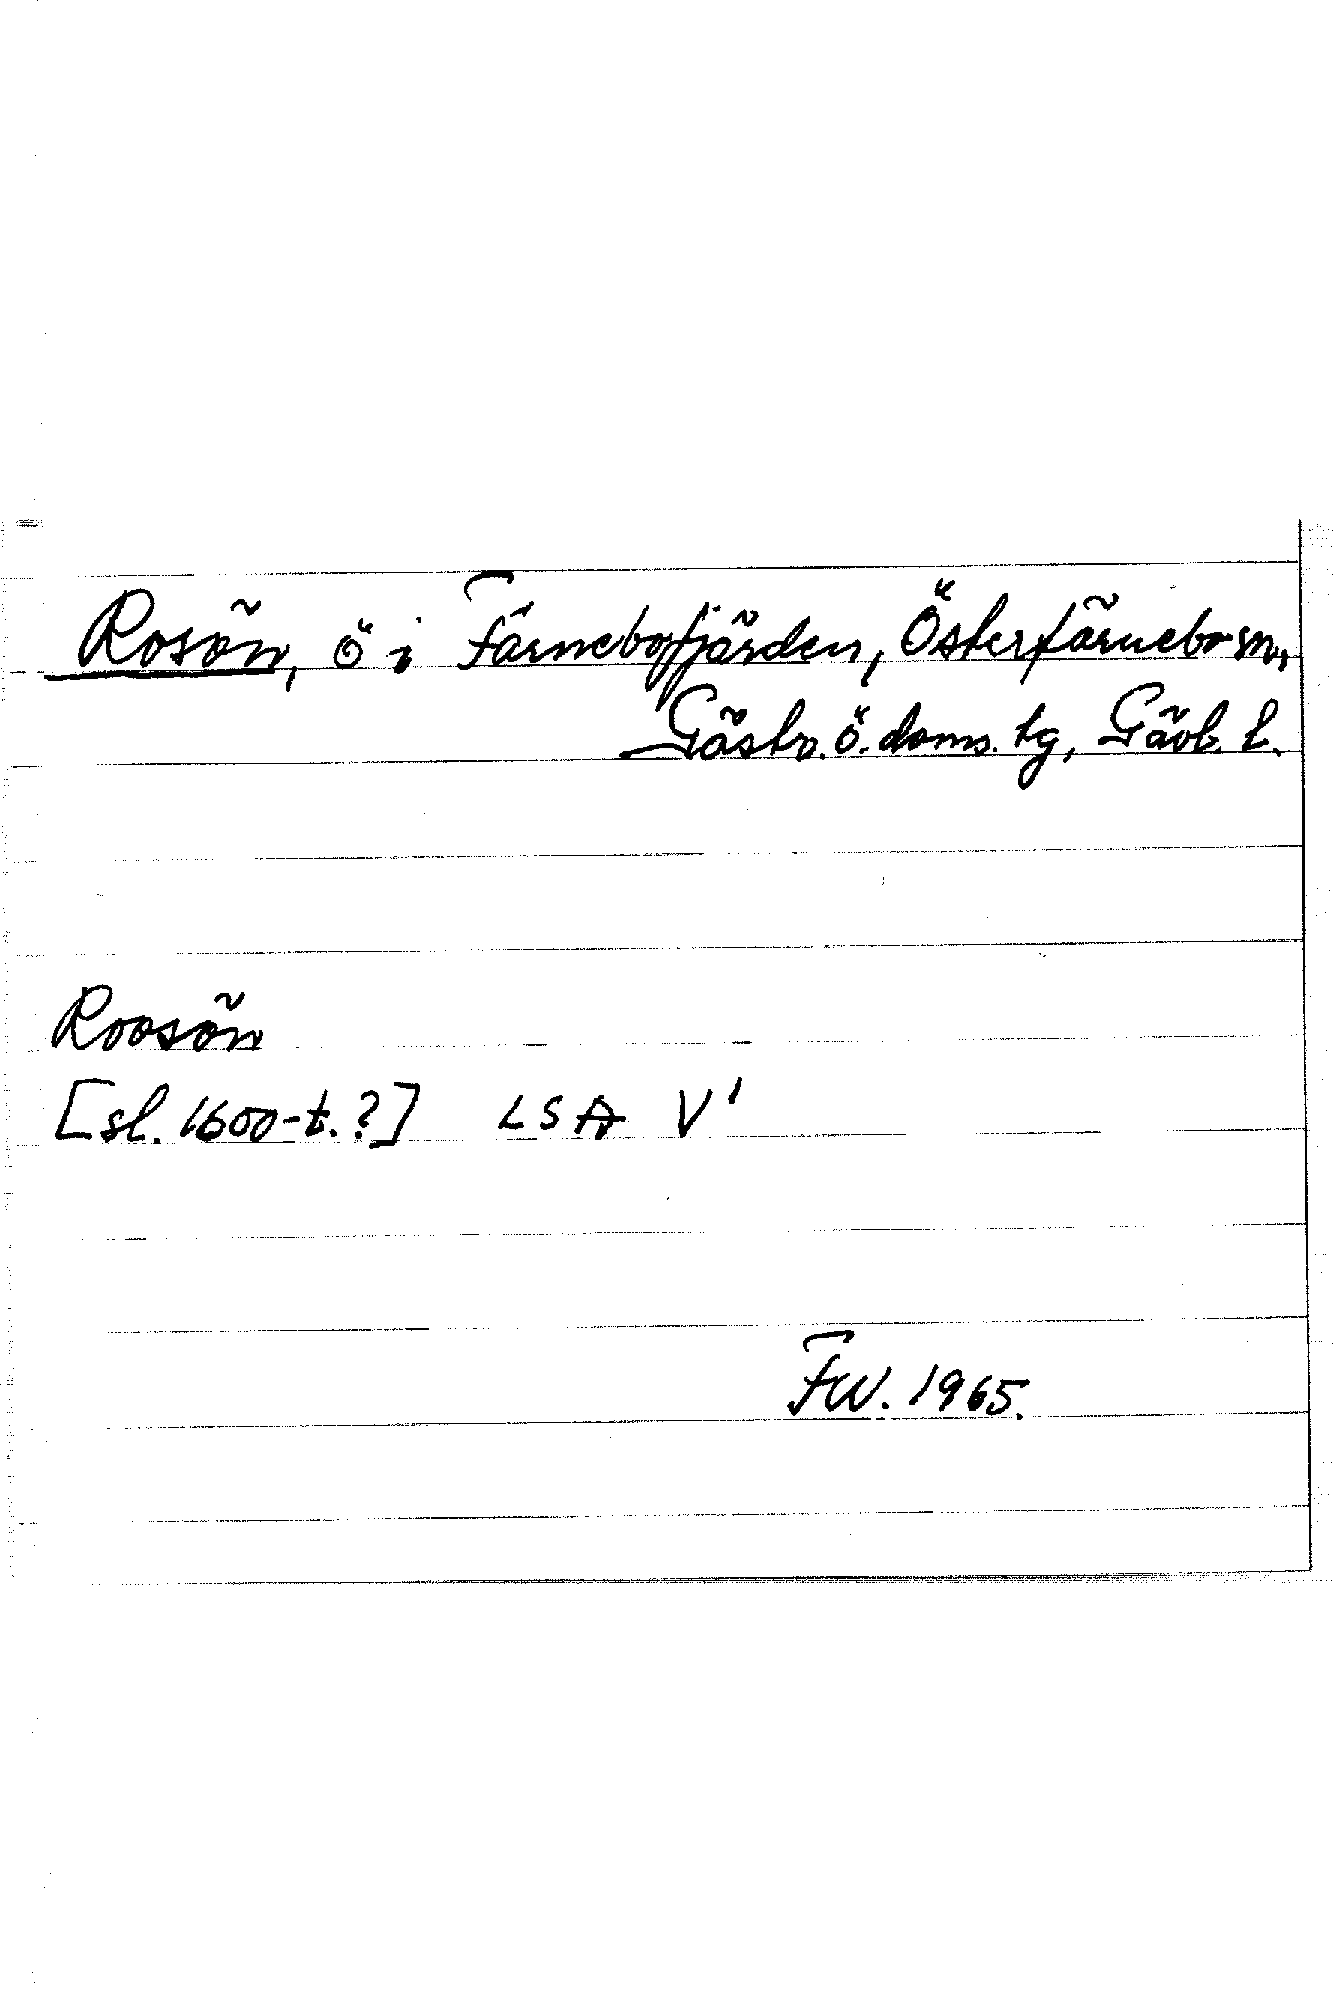 Rosön, ö i Färnebofjärden, Österfärnebo sn,
Gästr. ö. doms. tg, Gävl. l.
Roosön
[sl. 1600-t.?] LSA V¹
FW. 1965.